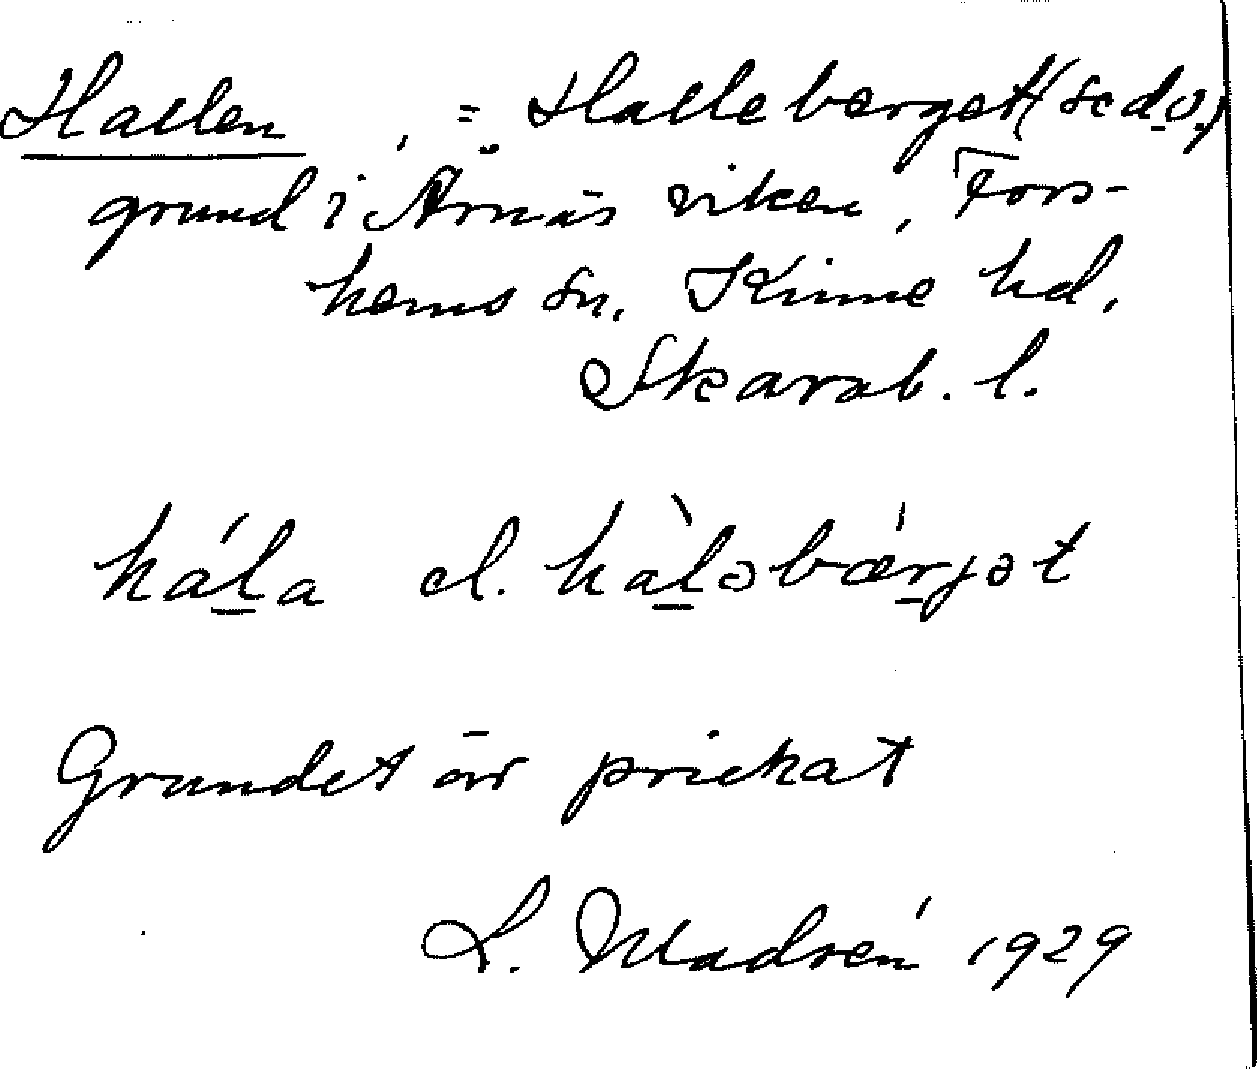 Hallen , = Halleberget (se d.o.)
grund i Årnäs viken, Fors-
hems sn, Kinne hd,
Skarab. l.
hála el. hàləbǽrjət
Grundet är prickat
L. Madrén 1929